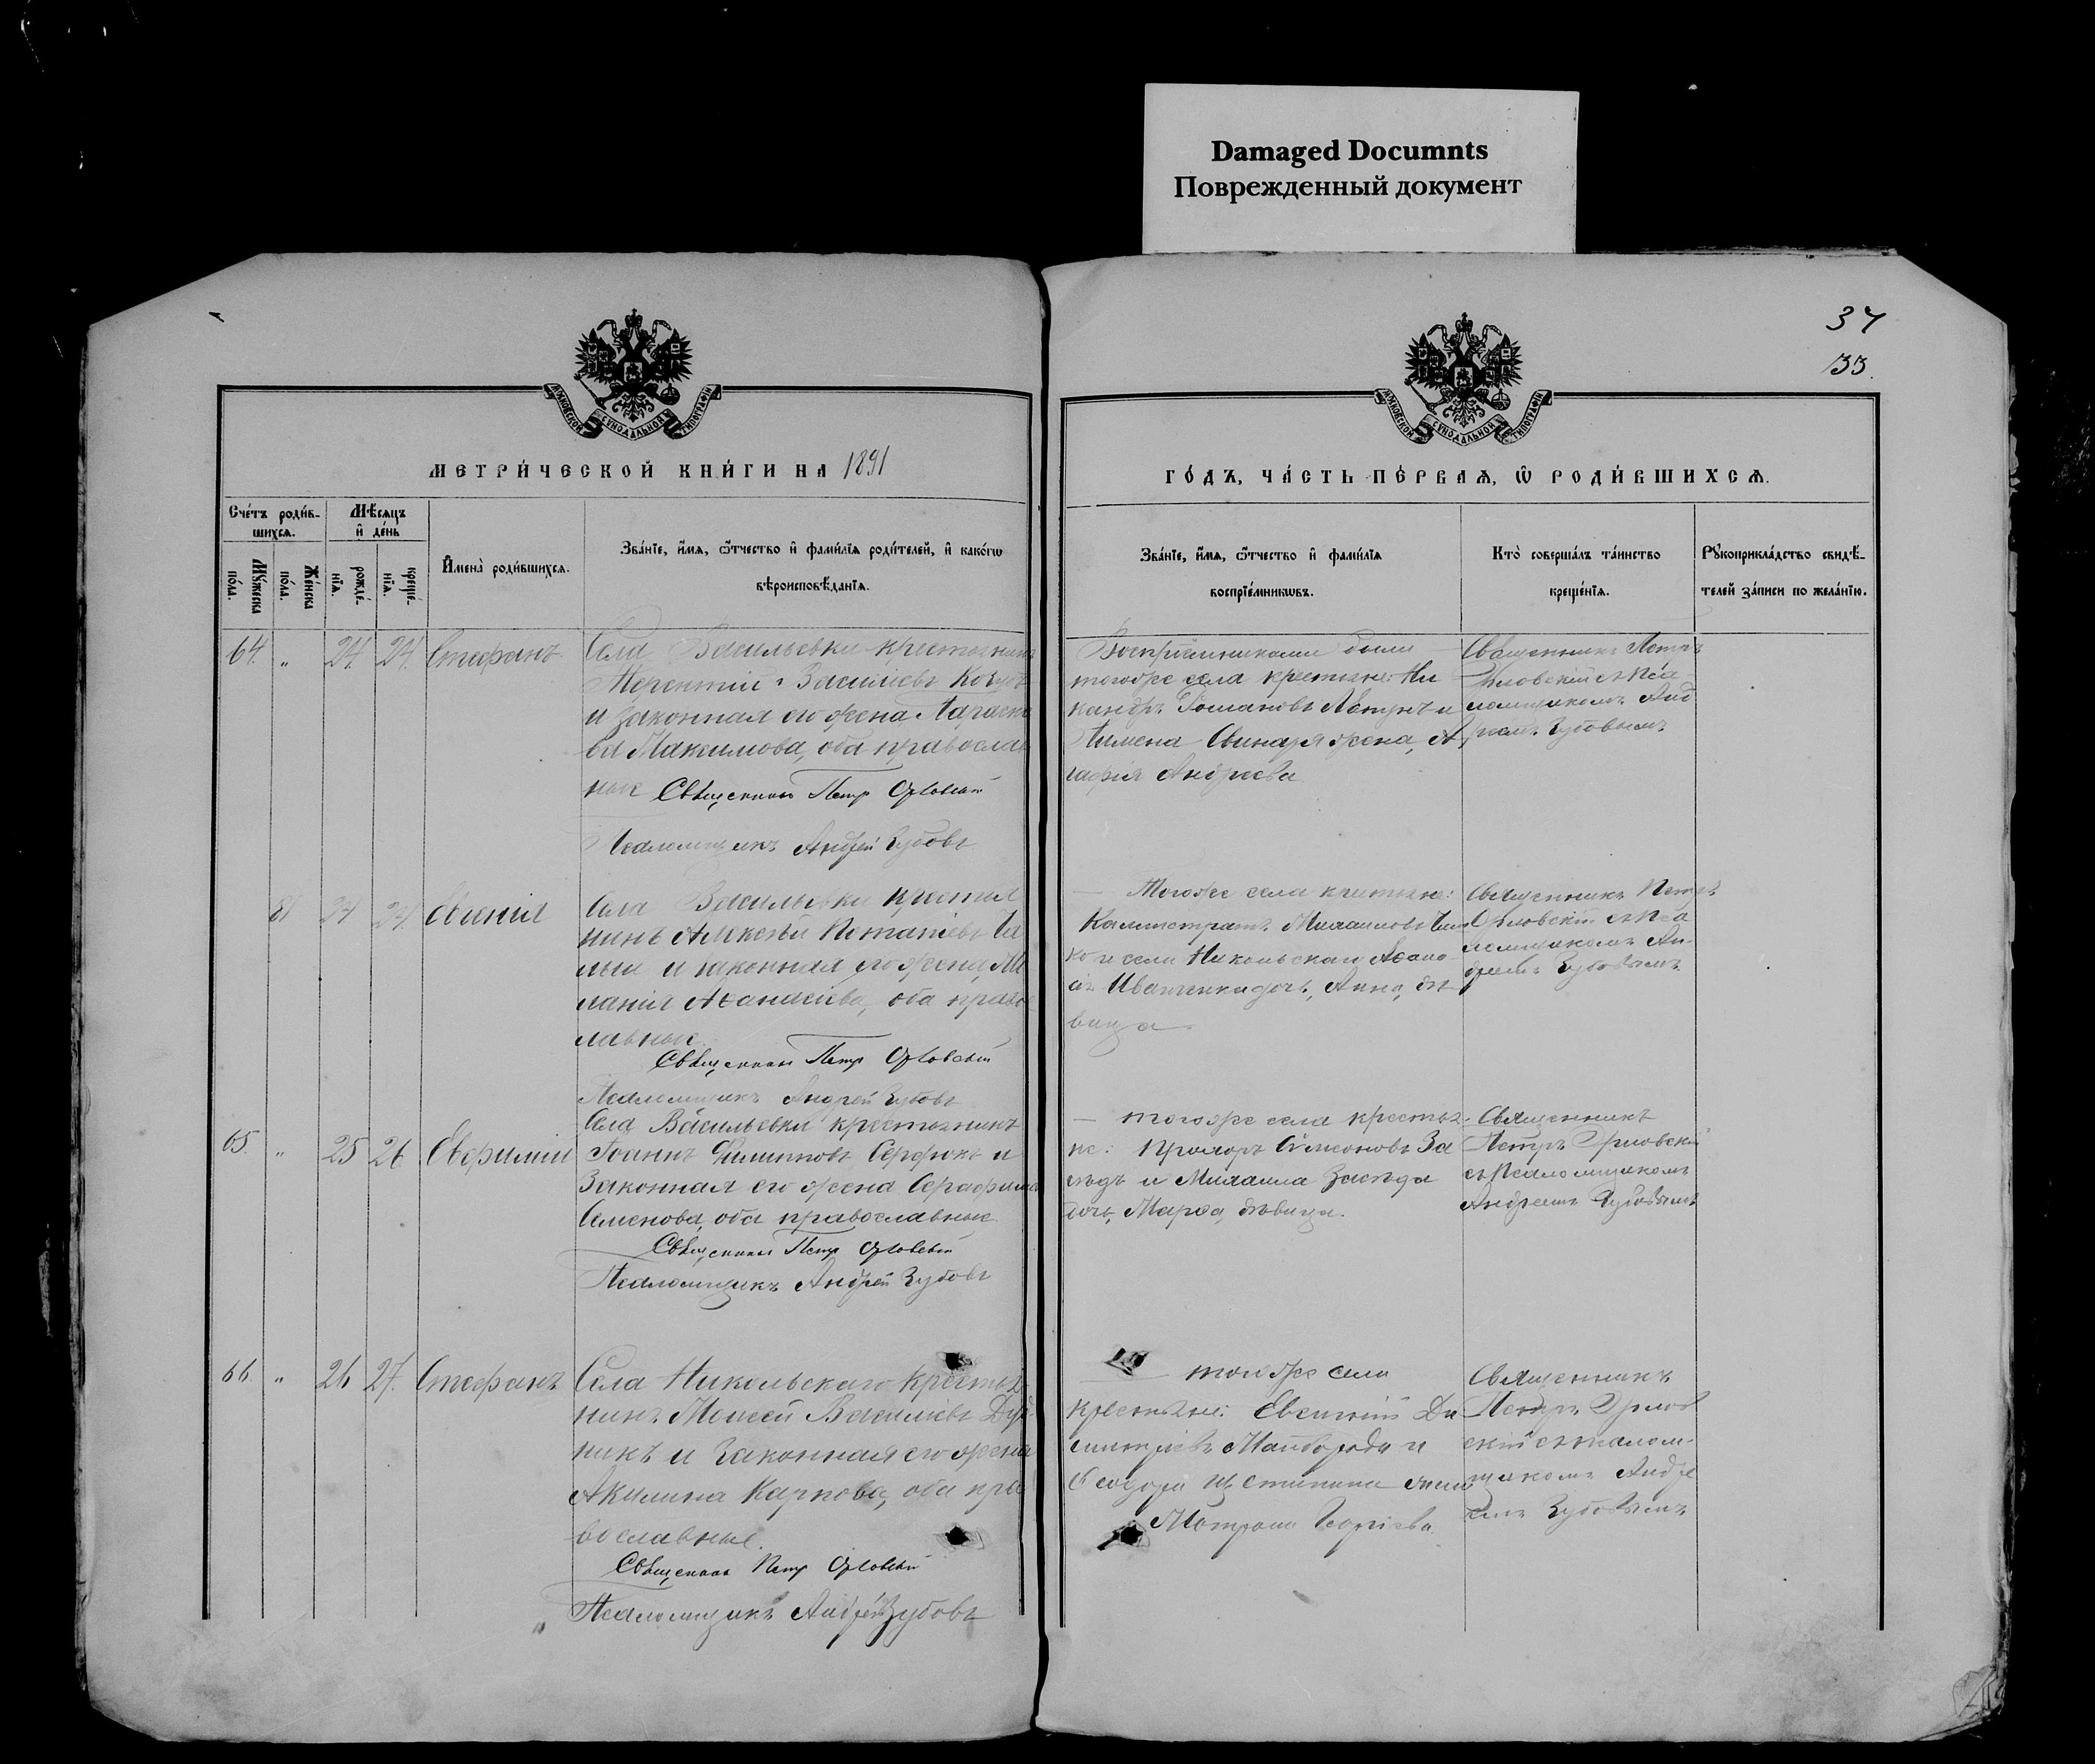 Damaged Documnts
Поврежденный документ
34
33.
МОСКОВСКОЙ СУНОДАЛЬНОЙ ТИПОГРАФІИ
МОСКОВСКОЙ СУНОДАЛЬНОЙ ТИПОГРАФІИ
МЕТРИ́ЧЕСКОЙ КНИ́ГИ НА 1891
ГО́ДЪ, ЧА́СТЬ ПЕ́РВАѦ, Ѿ РОДИ́ВШИХСѦ.
Сче́тъ роди́в-
шихсѧ.
Мꙋжеска по́ла.
Же́нска по́ла.
Мѣ́сѧцъ
и҆ де́нь
рожде́-
нїѧ.
креще́-
нїѧ.
И҆мена̀ роди́вшихсѧ.
Зва́нїе, и҆́мѧ, ѻ҆́тчество и҆ фами́лїѧ роди́телей, и҆ како́гѡ
вѣроисповѣ́данїѧ.
Зва́нїе, и҆́мѧ, ѻ҆́тчество и҆ фами́лїѧ
воспрїе́мникѡвъ.
Кто̀ соверша́лъ та́инство
креще́нїѧ.
Рꙋкоприкла́дство свидѣ́-
телей за́писи по жела́нїю.
64. " 24. 24. Стефанъ
Села Васильевки крестьянинъ
Терентій Василіевъ
и законная его жена Параске
ва Максимова, оба православ
ные Священникъ Петръ Орловскій
Псаломщикъ Андрей Зубовъ
Воспріемниками были
тогоже села крестьяне: Ни
кандръ Романовъ и
Пимена Свинаря жена, А
гафія Андреева
Священникъ Петръ
Орловскій съ Пса
ломщикомъ Анд
реемъ Зубовымъ
24 24. Евгенія
Села Васильевки крестья
нинъ Алексѣй Игнатіевъ
и законная его жена, Ме
ланія Аѳанасіева, оба правос
лавные.
Священникъ Петръ Орловскій
Псаломщикъ Андрей Зубовъ
Тогоже села крестьяне:
Каллистратъ Михаиловъ
и села Никольскаго Аѳана
сія Иванченка дочь, Анна, дѣ
вица.
Священникъ Петръ
Орловскій съ Пса
ломщикомъ Ан-
дреемъ Зубовымъ
65. " 25 26 Евфимій
Села Васильевки крестьянинъ
Іоаннъ Филипповъ Сердюкъ и
Законная его жена Серафима
Семенова, оба православные
Священникъ Петръ Орловскій
Псаломщикъ Андрей Зубовъ
тогоже села крестья-
не: Прохоръ Симеоновъ За
сѣдъ и Михаила Засѣда
дочь, Марѳа, дѣвица.
Священникъ
Петръ Орловскій
съ Псаломщикомъ
Андреемъ Зубовымъ
66. " 26 27. Стефанъ
Села Никольскаго крестья-
нинъ Моисей Василіевъ Дуд-
никъ и законная его жена
Акилина Карпова, оба пра
вославные.
Священникъ Петръ Орловскій
Псаломщикъ Андрей Зубовъ
тогоже села
крестьяне: Евгеній Ди
митріевъ Майборода и
Ѳеодора жена
Матрона Георгіева
Священникъ
Петръ Орлов
скій съ псалом-
щикомъ Андре
емъ Зубовымъ